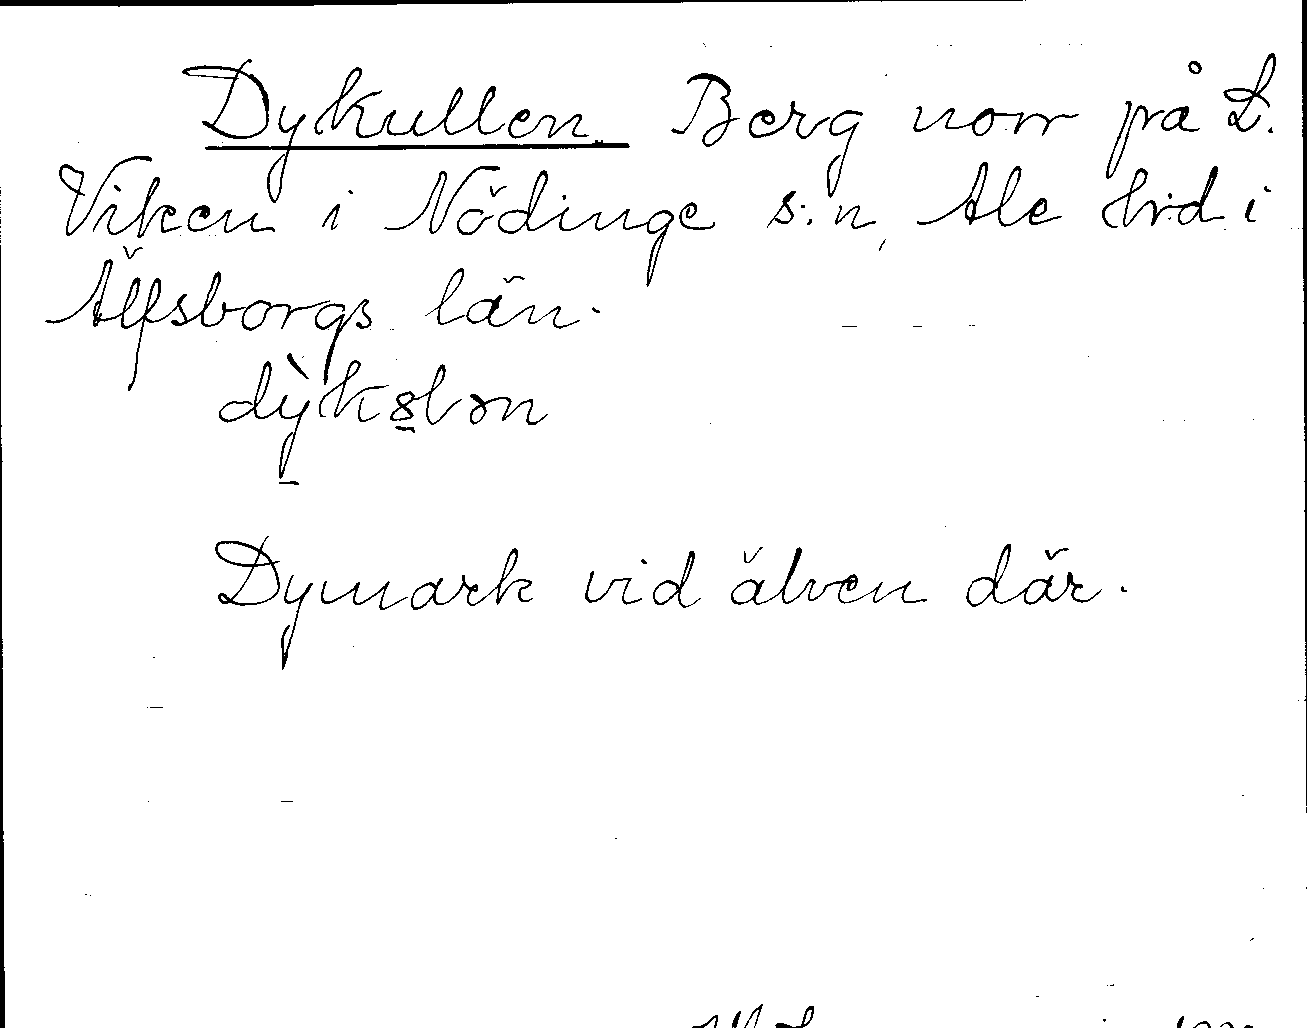 Dykullen Berg norr på L.
Viken i Nödinge s:n, Ale hrd i
Älfsborgs län.
dỳkslən
Dymark vid älven där.